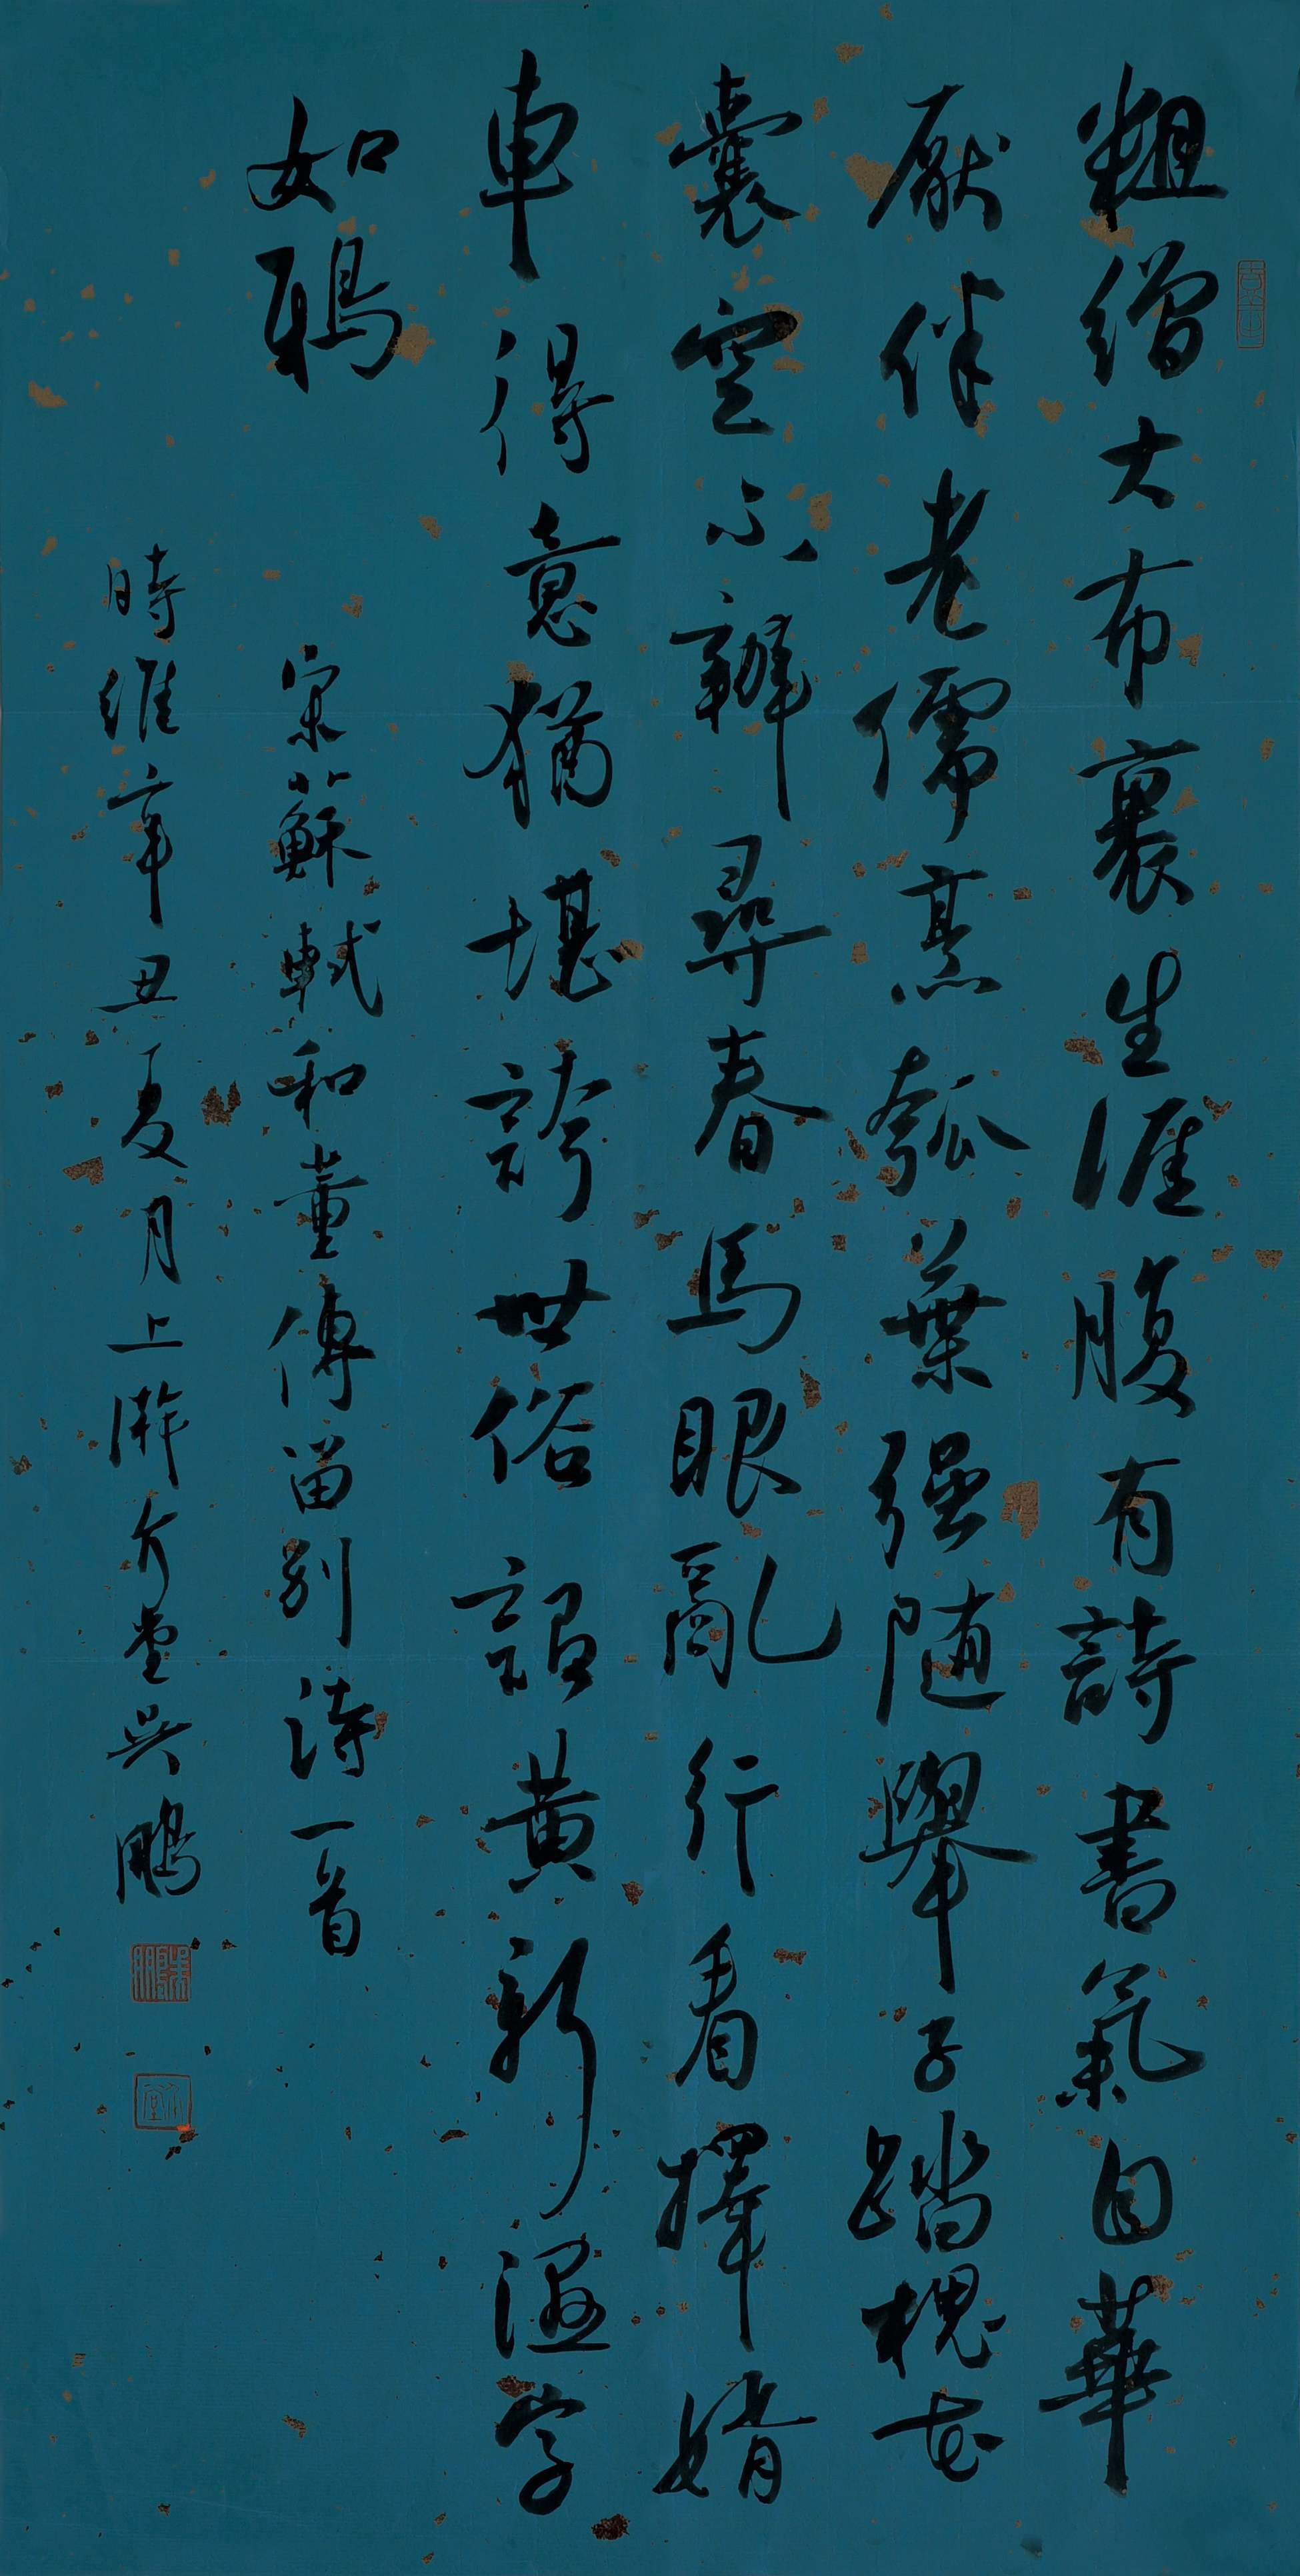 粗繒大布裹生涯腹有詩書氣自華
厭伴老儒烹瓠葉强随舉子踏槐花
囊空不辦尋春馬眼亂行看擇婿
車得意猶堪誇世俗詔黄新濕字
如鴉
宋蘇軾和董傳留别詩一首
時維辛丑夏月上澣介堂吳鵬